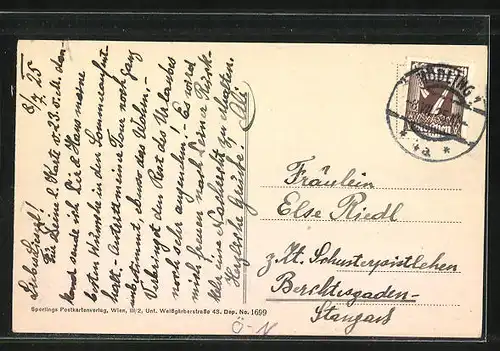 8/VII 25
Lieber Liesgl!
Für Deine l. Karte v. 23. v. M. den
sende ich Dir & Haus meine
besten Wünsche in den Sommeraufent-
halt. Antritt meiner Tour noch ganz
unbestimmt, ebenso das Wohin. -
Verbringst den Rest des Urlaubes
noch sehr angenehm! - Es wird
mich freuen nach Deiner Rück-
kehr eine Nachricht zu erhalten.
Herzliche Grüße.
MÖDLING 1
* 4a *
Fräulein
Else Riedl
z. Zt. Schusterpointlehen
Berchtesgaden-
Stangass
Sperlings Postkartenverlag, Wien, III/2, Unt. Weißgärberstraße 43. Dep. No. 1699
Ö-N